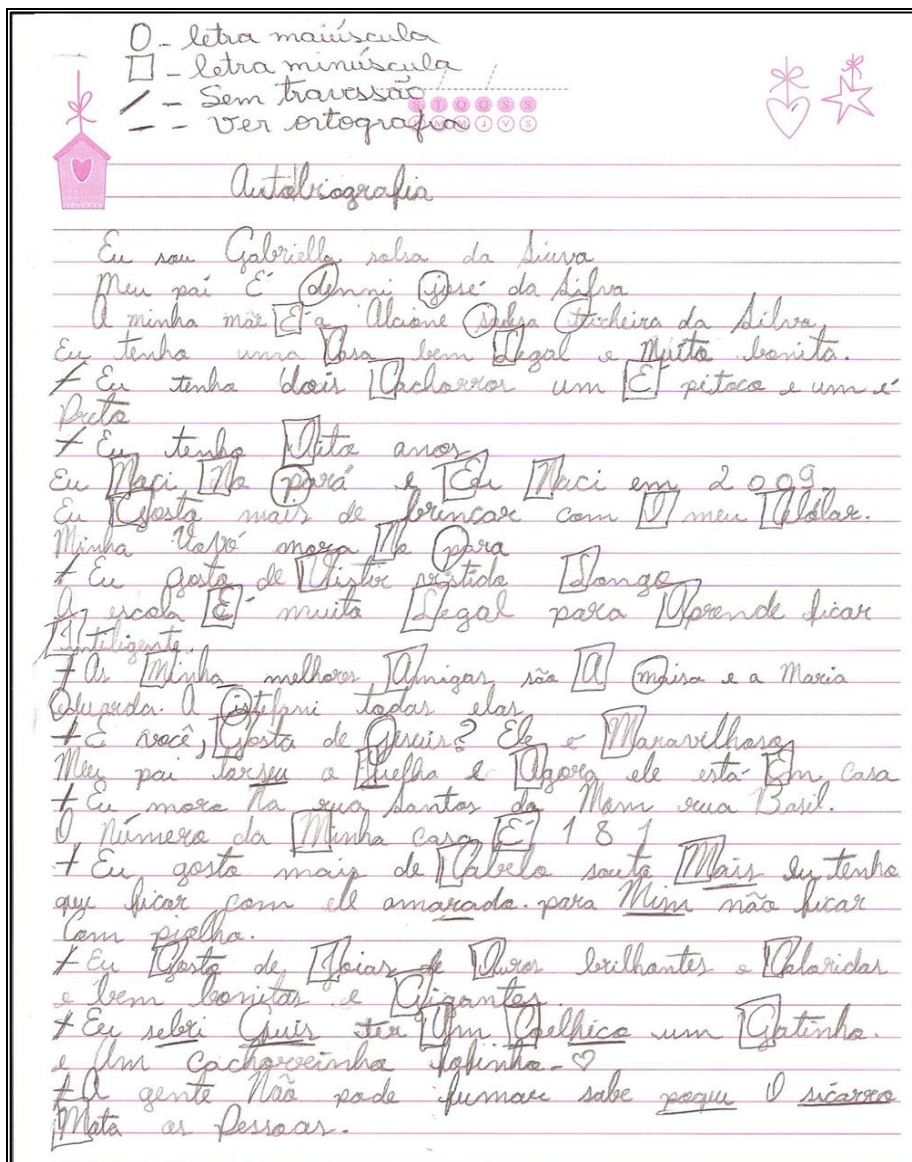 O - letra maiúscula
□ - letra minúscula
/ - Sem travessão
- - Ver ortografia
S T Q Q S S
Autobiografia
Eu sou Gabriella salsa da
Meu pai É denni josé da Silva
A minha mãe É a Alcione salsa da Silva
Eu tenho uma Casa bem Legal e Muito bonita.
Eu tenho dois Cachorros um É pitoco e um é
Preto
Eu tenho Oito anos
Eu Naci No pará e Eu Naci em 2009.
Eu Gosto mais de brincar com O meu
Minha Vovó mora No para
Eu gosto de Vistir vistido Longo
A escola É muito Legal para Aprende ficar
Inteligente.
As Minha melhores Amigas são A maisa e a Maria
eduarda. A istefani todas elas
E você, Gosta de jesuis? Ele e Maravilhoso
Meu pai a e Agora ele está Em casa
Eu moro Na rua Santos do rua Basil.
O Número da Minha casa É 181
Eu gosto mais de Cabelo souto Mais Eu tenho
que ficar com ele amarado. para Mim não ficar
Com piolho.
Eu Gosto de Joias de Ouros brilhantes e Coloridas
e bem bonitas e Gigantes.
Eu Quis ter Um Coelhico um Gatinho.
e Um Cachorreinho fofinho-♡
A gente Não pode fumar sabe poque O sicarro
Mata as Pessoas.